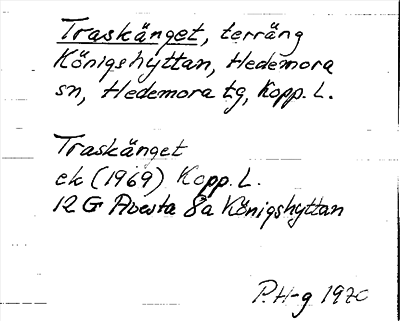 Traskänget, terräng
Königshyttan, Hedemora
sn, Hedemora tg, Kopp. L.
Traskänget
ek (1969) Kopp. L.
12 G Avesta 8a Königshyttan
P. H-g 1970